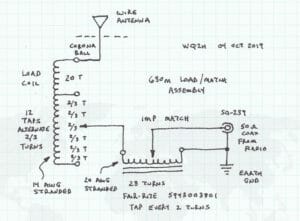 WIRE
ANTENNA
CORONA
BALL
WQ2H 04 OCT 2019
LOAD
COIL
20 T
630M LOAD/MATCH
ASSEMBLY
2/3 T
2/3 T
2/3 T
2/3 T
2/3 T
12
TAPS
ALTERNATE
2/3
TURNS
IMP MATCH
SO-239
50 Ω
COAX
FROM
RADIO
14 AWG
STRANDED
20 AWG
STRANDED
28 TURNS
FAIR-RITE 5943003801
TAP EVERY 2 TURNS
EARTH
GND